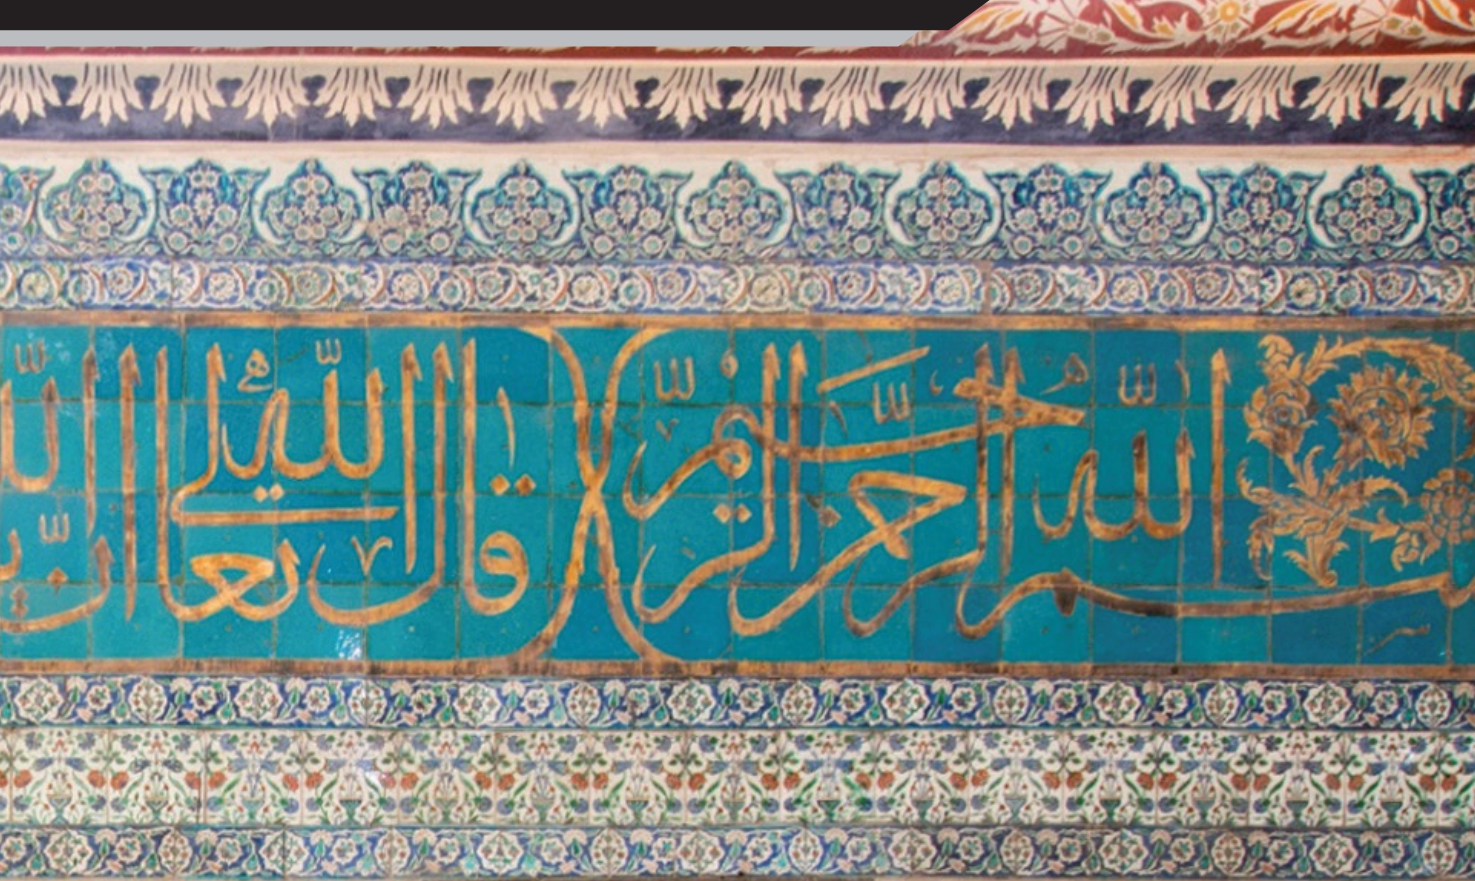 بسم الله الرحمن الرحيم قال الله تعالى ان